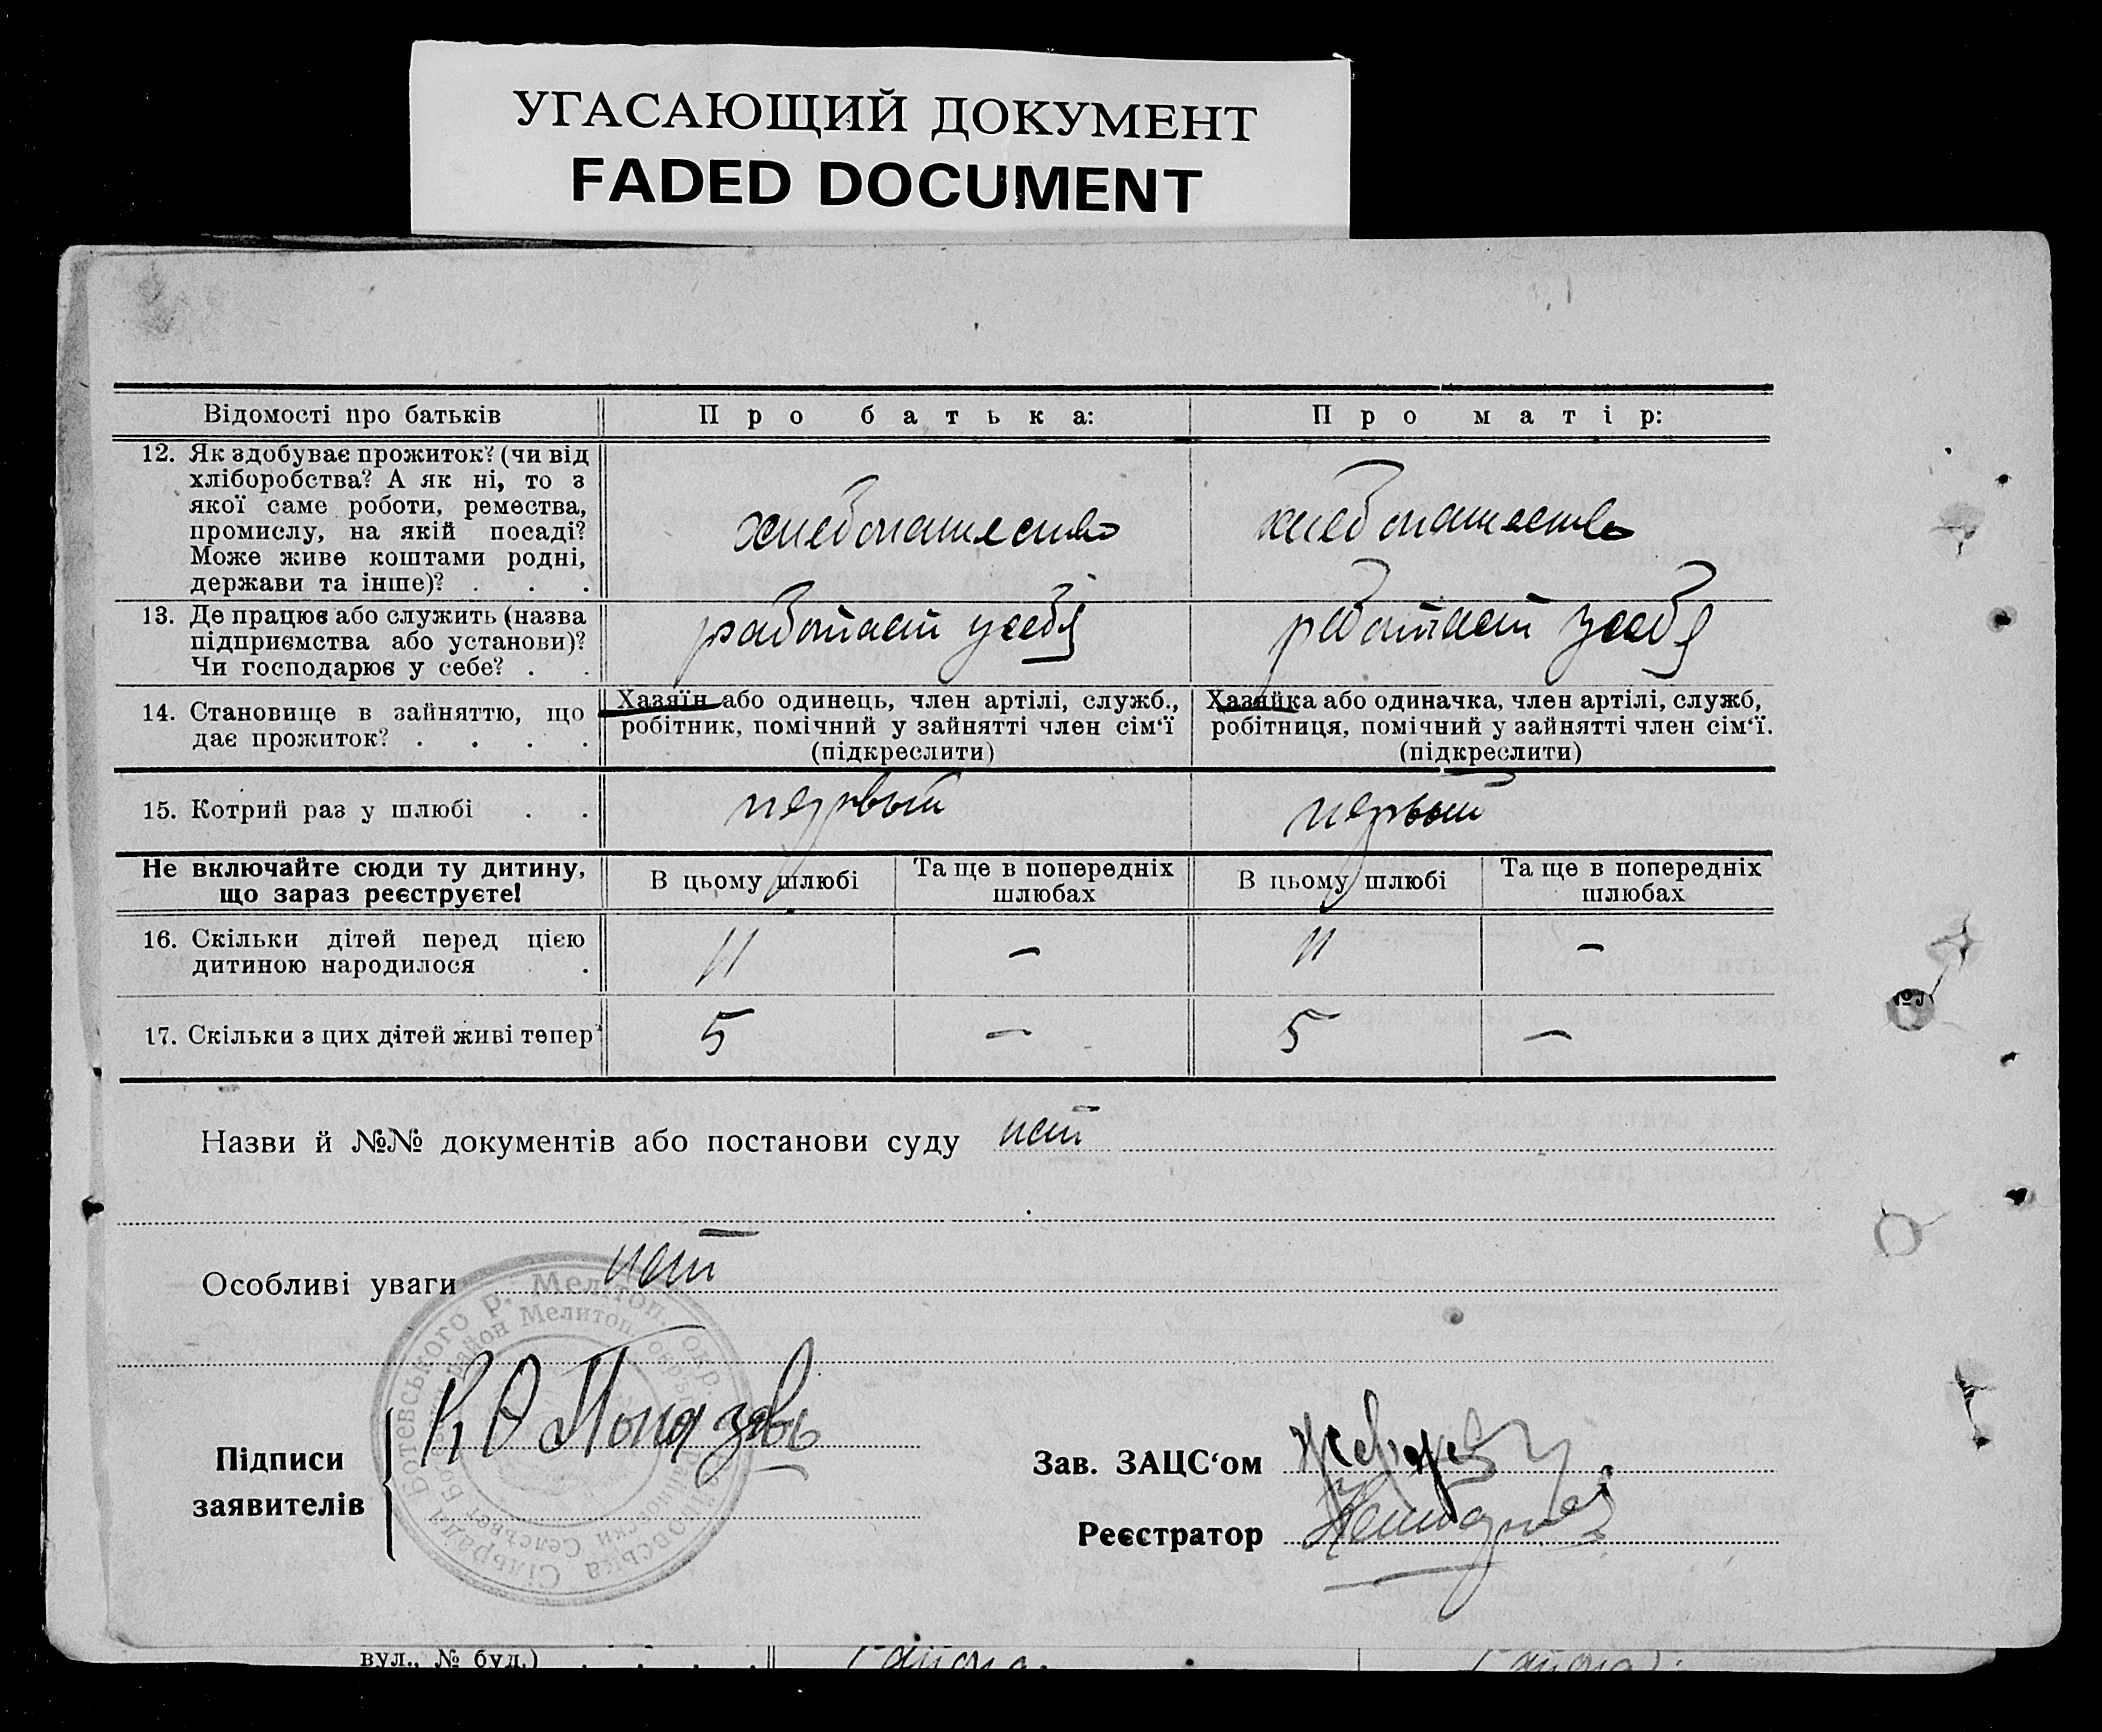 УГАСАЮЩИЙ ДОКУМЕНТ
FADED DOCUMENT
Відомості про батьків
Про батька:
Про матір:
12. Як здобуває прожиток? (чи від
хліборобства? А як ні, то з
якої саме роботи, ремества,
промислу, на якій посаді?
Може живе коштами родні,
держави та інше)? . . .
хлебопашество
хлебопашество
13. Де працює або служить (назва
підприємства або установи)?
Чи господарює у себе? . .
работает у себя
работает у себя
14. Становище в зайняттю, що
дає прожиток? . . . .
Хазяїн або одинець, член артілі, служб.,
робітник, помічний у зайнятті член сім‘ї
(підкреслити)
Хазяйка або одиначка, член артілі, служб,
робітниця, помічний у зайнятті член сім‘ї.
(підкреслити)
15. Котрий раз у шлюбі . .
первый
первый
Не включайте сюди ту дитину,
що зараз реєструєте!
В цьому шлюбі
Та ще в попередніх
шлюбах
В цьому шлюбі
Та ще в попередніх
шлюбах
16. Скільки дітей перед цією
дитиною народилося .
11
–
11
–
17. Скільки з цих дітей живі тепер
5
–
5
–
Назви й №№ документів або постанови суду нет
Особливі уваги нет
Ботевського р. Мелітоп. окр.
Сільрада
район Мелитоп.
Селсьвет
Підписи
заявителів
Зав. ЗАЦС‘ом
Реєстратор
вул., № буд.) . . . .